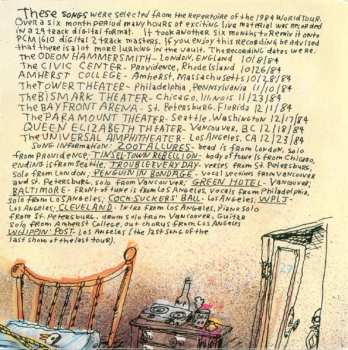 These SONGS were selected from the repertoire of the 1984 WORLD TOUR.
Over a six month period many hours of exciting live material was recorded
in a 24 track digital format. It took another six months to Remix it onto
PCM 1610 digital 2 track masters. If you enjoy this recording be advised
that there is a lot more lurking in the vault. The recording dates were:
THE ODEON HAMMERSMITH - LONDON, ENGLAND 10/8/84
THE CIVIC CENTER - Providence, Rhode Island 10/26/84
AMHERST COLLEGE - Amherst, Massachusetts 10/28/84
THE TOWER THEATER - Philadelphia, Pennsylvania 11/10/84
THE BISMARK THEATER - Chicago, Illinois 11/23/84
THE BAYFRONT ARENA - St. Petersburg, Florida 12/1/84
THE PARAMOUNT THEATER - Seattle, Washington 12/17/84
QUEEN ELIZABETH THEATER - Vancouver, BC 12/18/84
THE UNIVERSAL AMPHITHEATER - Los Angeles, CA 12/23/84
SONG INFORMATION: ZOOT ALLURES - head is from London, solo
from Providence; TINSEL TOWN REBELLION - body of tune is from Chicago,
ending is from Seattle; TROUBLE EVERY DAY - verses from St. Petersburg,
Solo from London; PENGUIN IN BONDAGE - vocal sections from Vancouver
and St. Petersburg, solo from Vancouver; GREEN HOTEL - Vancouver;
BALTIMORE - front of tune is from Los Angeles, vocals from Philadelphia,
solo from Los Angeles; COCK-SUCKERS' BALL - Los Angeles; WPLJ -
Los Angeles; CLEVELAND - intro from Los Angeles, piano solo
from St. Petersburg, drum solo from Vancouver, Guitar
Solo from Amherst College, out chorus from Los Angeles
WHIPPIN' POST - Los Angeles (the last song of the
last show of the last tour).